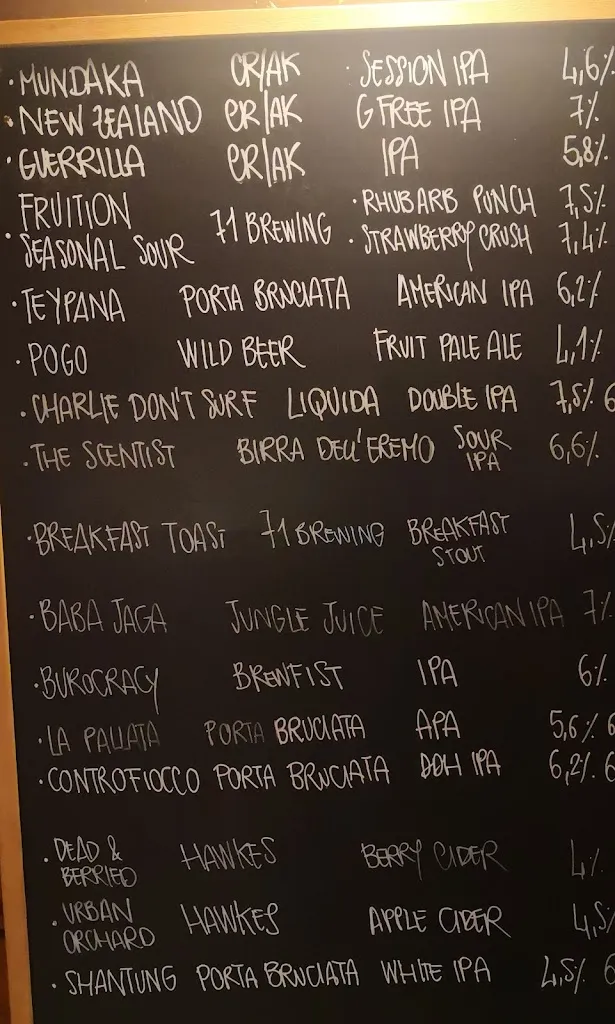 · MUNDAKA CR/AK · SESSION IPA 4,6%
· NEW ZEALAND CR/AK G FREE IPA 7%
· GUERRILLA CR/AK IPA 5,8%
· FRUITION SEASONAL SOUR 71 BREWING · RHUBARB PUNCH 7,5%
· STRAWBERRY CRUSH 7,4%
· TEYPANA PORTA BRUCIATA AMERICAN IPA 6,2%
· POGO WILD BEER FRUIT PALE ALE 4,1%
· CHARLIE DON'T SURF LIQUIDA DOUBLE IPA 7,5% 6
· THE SCENTIST BIRRA DELL'EREMO SOUR IPA 6,6%
· BREAKFAST TOAST 71 BREWING BREAKFAST STOUT 4,5%
· BABA JAGA JUNGLE JUICE AMERICAN IPA 7%
· BUROCRACY BREWFIST IPA 6%
· LA PALLATA PORTA BRUCIATA APA 5,6% 6
· CONTROFIOCCO PORTA BRUCIATA DDH IPA 6,2% 6
· DEAD & BERRIED HAWKES BERRY CIDER 4%
· URBAN ORCHARD HAWKES APPLE CIDER 4,5%
· SHANTUNG PORTA BRUCIATA WHITE IPA 4,5% 6